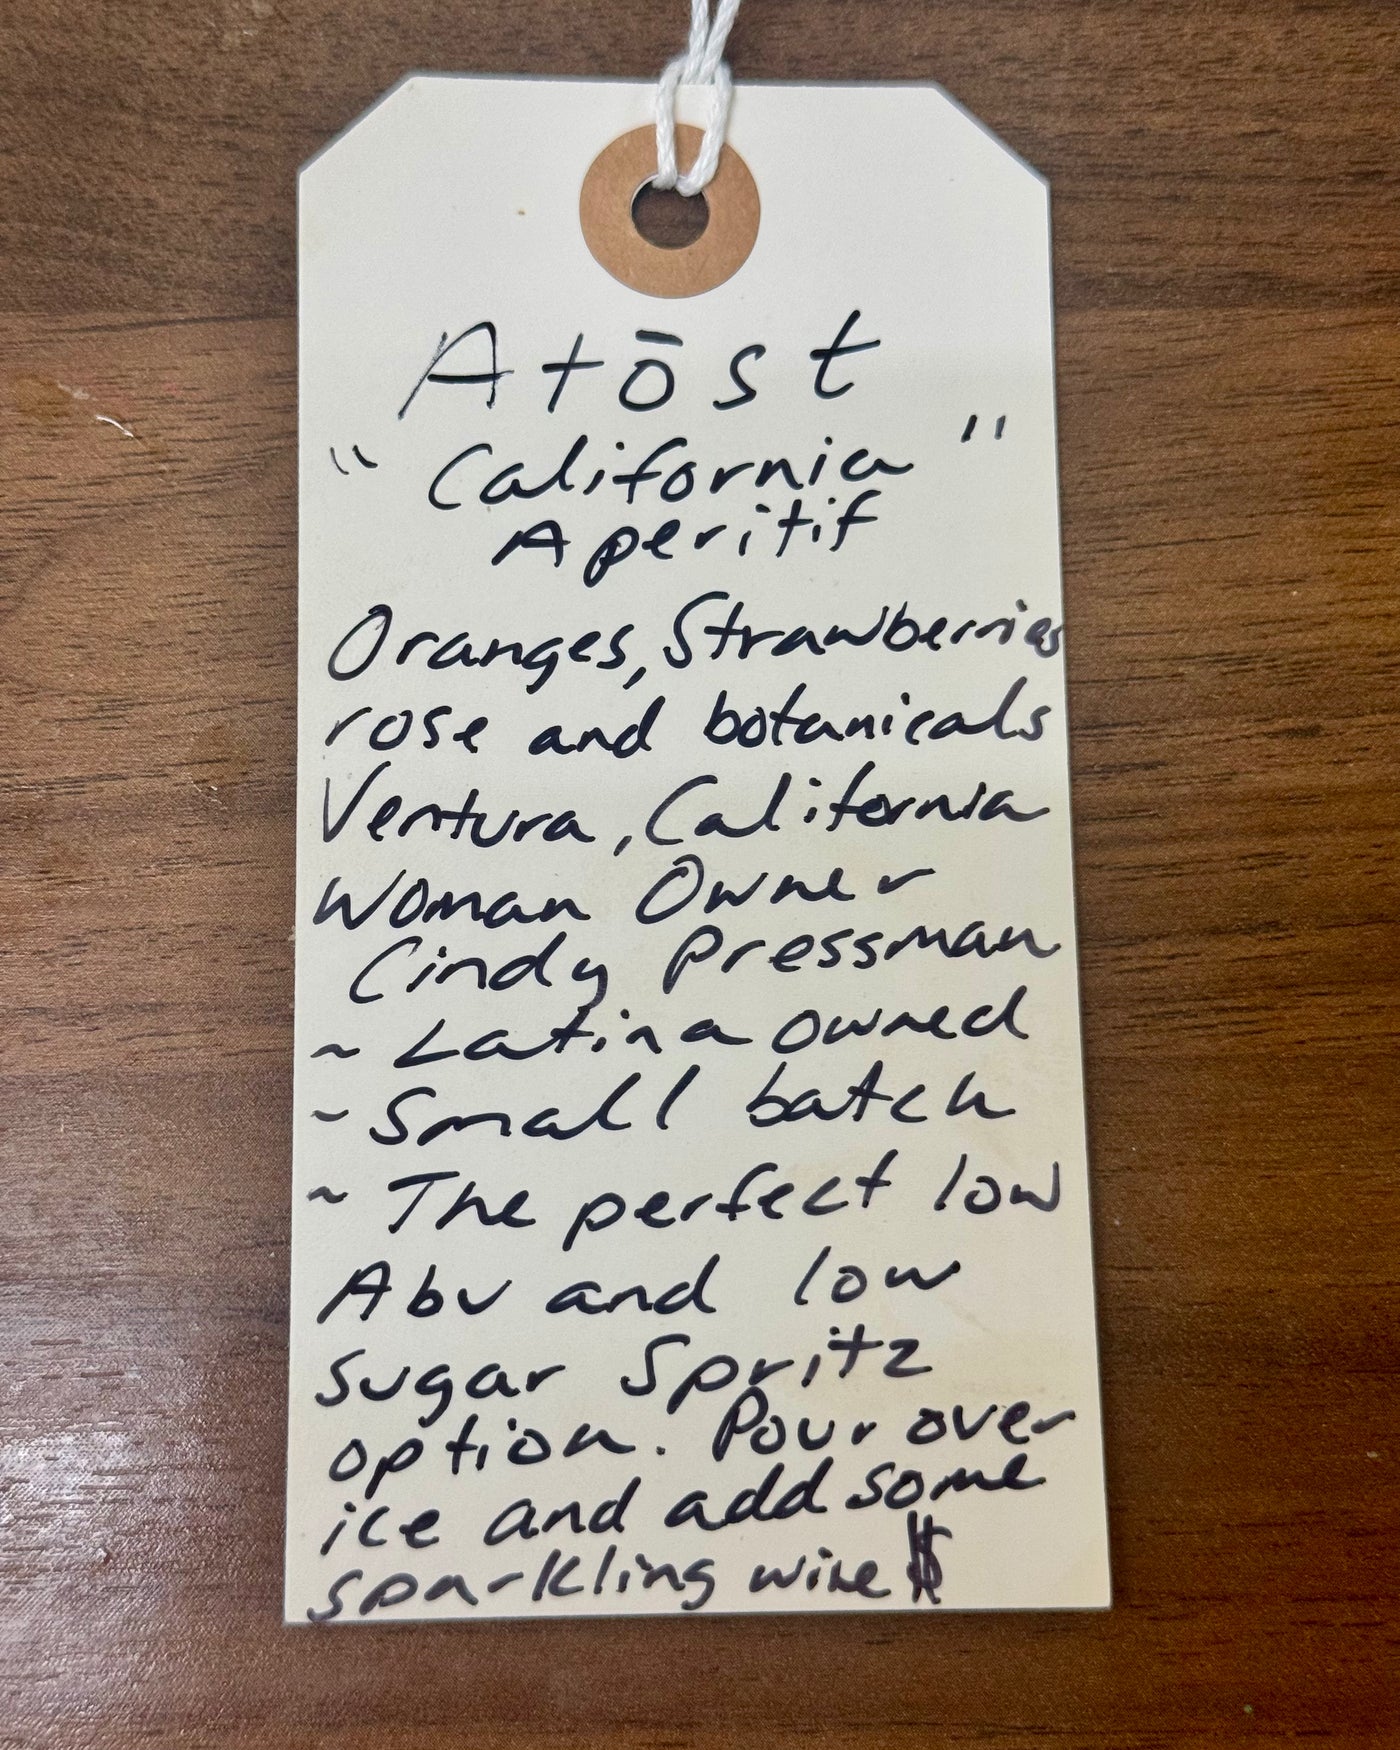 Atōst
"California"
Aperitif
Oranges, Strawberries
rose and botanicals
Ventura, California
Woman Owner
Cindy Pressman
~ Latina owned
~ Small batch
~ The perfect low
Abv and low
sugar Spritz
option. Pour over
ice and add some
sparkling wine $